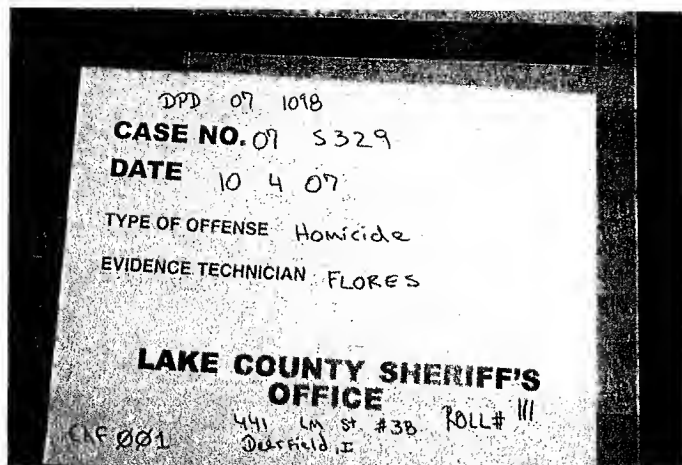 DPD 07 1098
CASE NO. 07 S329
DATE 10 4 07
TYPE OF OFFENSE Homicide
EVIDENCE TECHNICIAN FLORES
LAKE COUNTY SHERIFF'S
OFFICE
441 st #3B ROLL# III
001 Deerfield, I